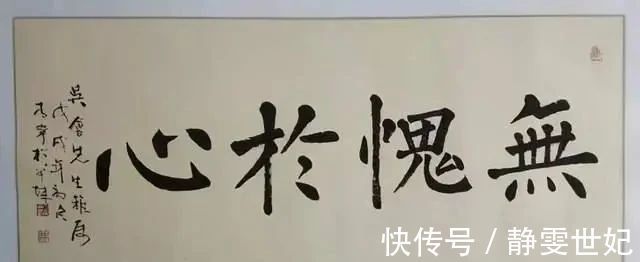 無愧於心
吴會先生雅属
戊戌年初冬
快传号 / 静雯世妃